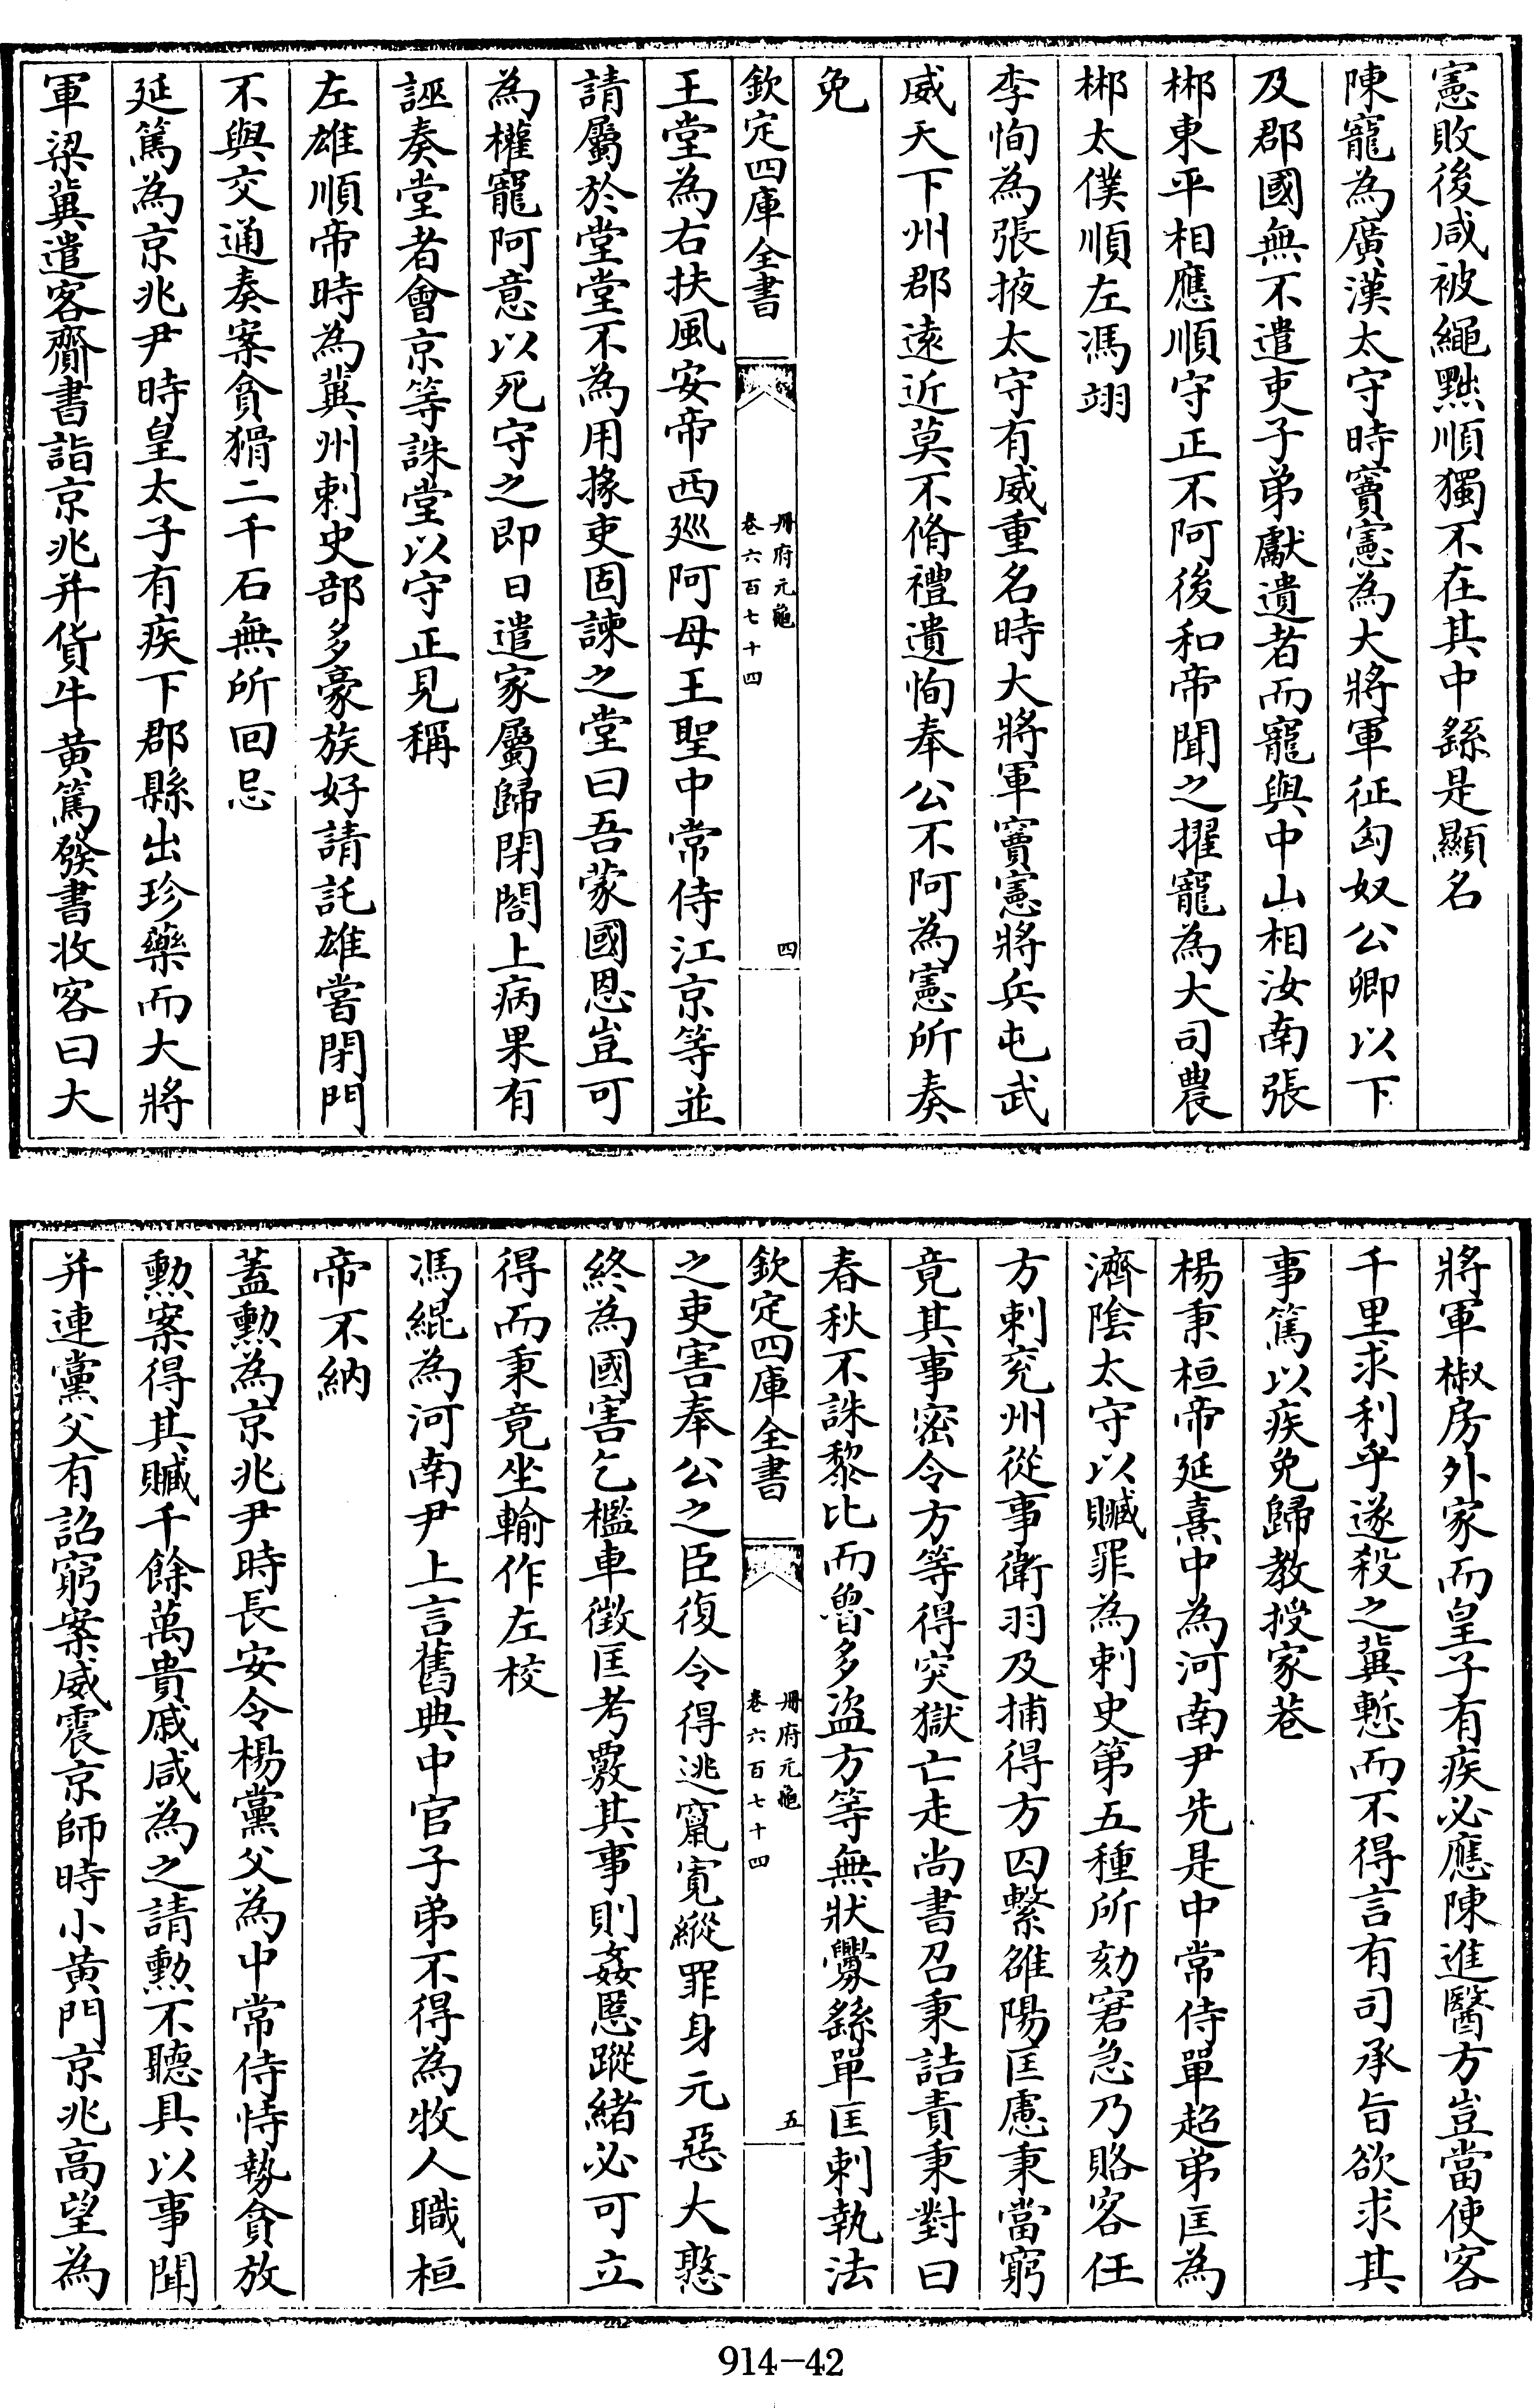 憲敗後咸被繩黜順獨不在其中繇是顯名
陳寵為廣漢太守時竇憲為大將軍征匈奴公卿以下
及郡國無不遣吏子弟獻遺者而寵與中山相汝南張
郴東平相應順守正不阿後和帝聞之擢寵為大司農
郴太僕順左馮翊
李恂為張掖太守有威重名時大將軍竇憲將兵屯武
威天下州郡遠近莫不脩禮遺恂奉公不阿為憲所奏
免
欽定四庫全書
冊府元龜
卷六百七十四
四
王堂為右扶風安帝西廵阿母王聖中常侍江京等並
請屬於堂堂不為用掾吏固諫之堂曰吾蒙國恩豈可
為權寵阿意以死守之即日遣家屬歸閉閤上病果有
誣奏堂者會京等誅堂以守正見稱
左雄順帝時為冀州刺史部多豪族好請託雄嘗閉門
不與交通奏案貪猾二千石無所回忌
延篤為京兆尹時皇太子有疾下郡縣出珍藥而大將
軍梁冀遣客齎書詣京兆并貨牛黃篤發書收客曰大
將軍椒房外家而皇子有疾必應陳進醫方豈當使客
千里求利乎遂殺之冀慙而不得言有司承旨欲求其
事篤以疾免歸教授家巷
楊秉桓帝延熹中為河南尹先是中常侍單超弟匡為
濟陰太守以贓罪為刺史第五種所劾窘急乃賂客任
方刺兖州從事衛羽及捕得方囚繫雒陽匡慮秉當窮
竟其事密令方等得突獄亡走尚書召秉詰責秉對曰
春秋不誅黎比而魯多盜方等無狀釁繇單匡刺執法
欽定四庫全書
冊府元龜
卷六百七十四
五
之吏害奉公之臣復令得逃竄寛縱罪身元惡大憝
終為國害乞檻車徵匡考覈其事則姦慝蹤緒必可立
得而秉竟坐輸作左校
馮緄為河南尹上言舊典中官子弟不得為牧人職桓
帝不納
蓋勲為京兆尹時長安令楊黨父為中常侍恃勢貪放
勲案得其贓千餘萬貴戚咸為之請勲不聽具以事聞
并連黨父有詔窮案威震京師時小黃門京兆高望為
914-42